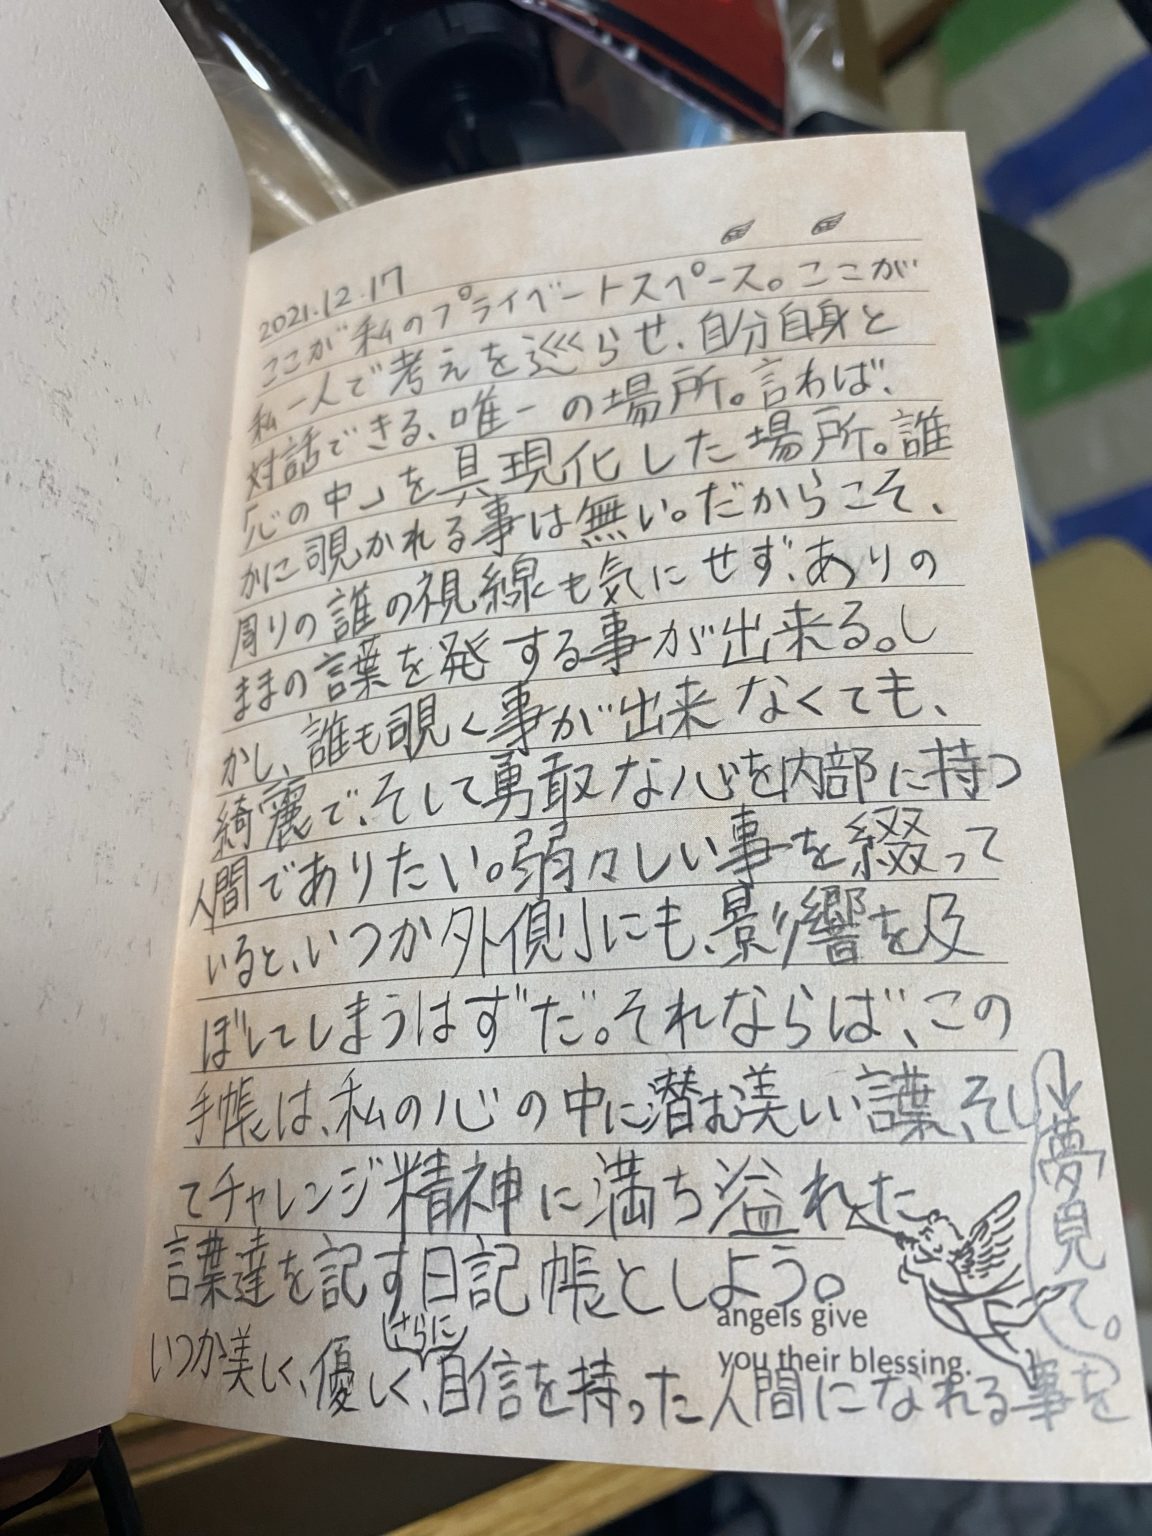 2021.12.17
ここが私のプライベートスペース。ここが
私一人で考えを巡らせ、自分自身と
対話できる、唯一の場所。言わば、
「心の中」を具現化した場所。誰
かに覗かれる事は無い。だからこそ、
周りの誰の視線も気にせず、ありの
ままの言葉を発する事が出来る。し
かし、誰も覗く事が出来なくても、
綺麗で、そして勇敢な心を内部に持つ
人間でありたい。弱々しい事を綴って
いると、いつか外側にも、影響を及
ぼしてしまうはずだ。それならば、この
手帳は、私の心の中に潜む美しい言葉、そし
てチャレンジ精神に満ち溢れた
言葉達を記す日記帳としよう。
angels give
you their blessing.
いつか美しく、優しく、さらに自信を持った人間になれる事を
夢見て。